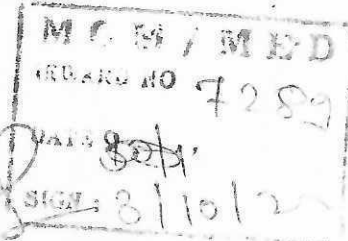 MCM / MED
INWARD NO 7289
DATE
SIGN: 8/10/2